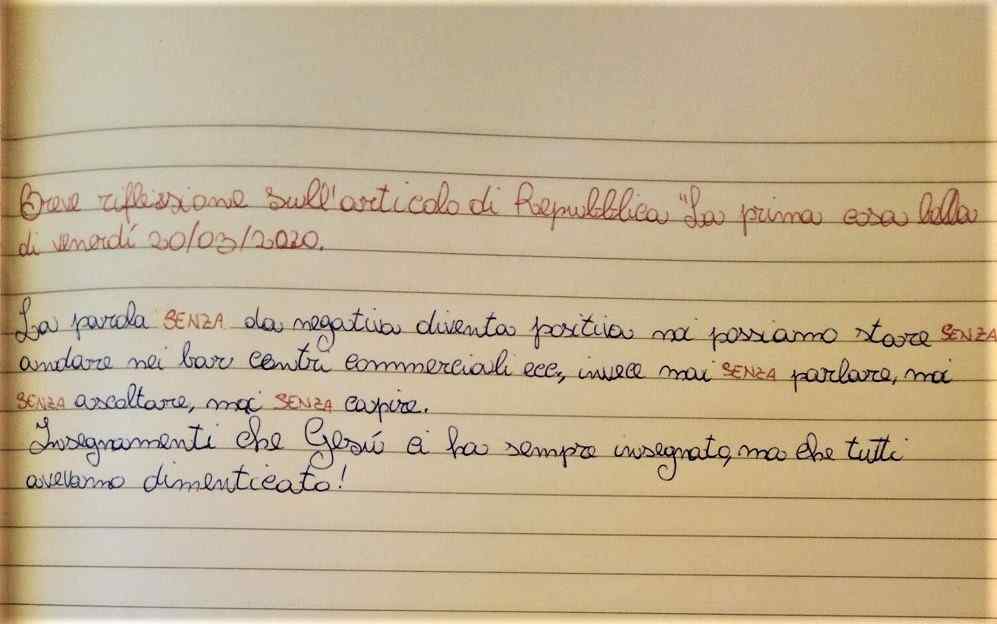 Breve riflessione sull'articolo di Repubblica "La prima cosa bella
di venerdí 20/03/2020.
La parola SENZA da negativa diventa positiva noi possiamo stare SENZA
andare nei bar centri commerciali ecc, invece mai SENZA parlare, mai
SENZA ascoltare, mai SENZA capire.
Insegnamenti che Gesú ci ha sempre insegnato, ma che tutti
avevamo dimenticato!